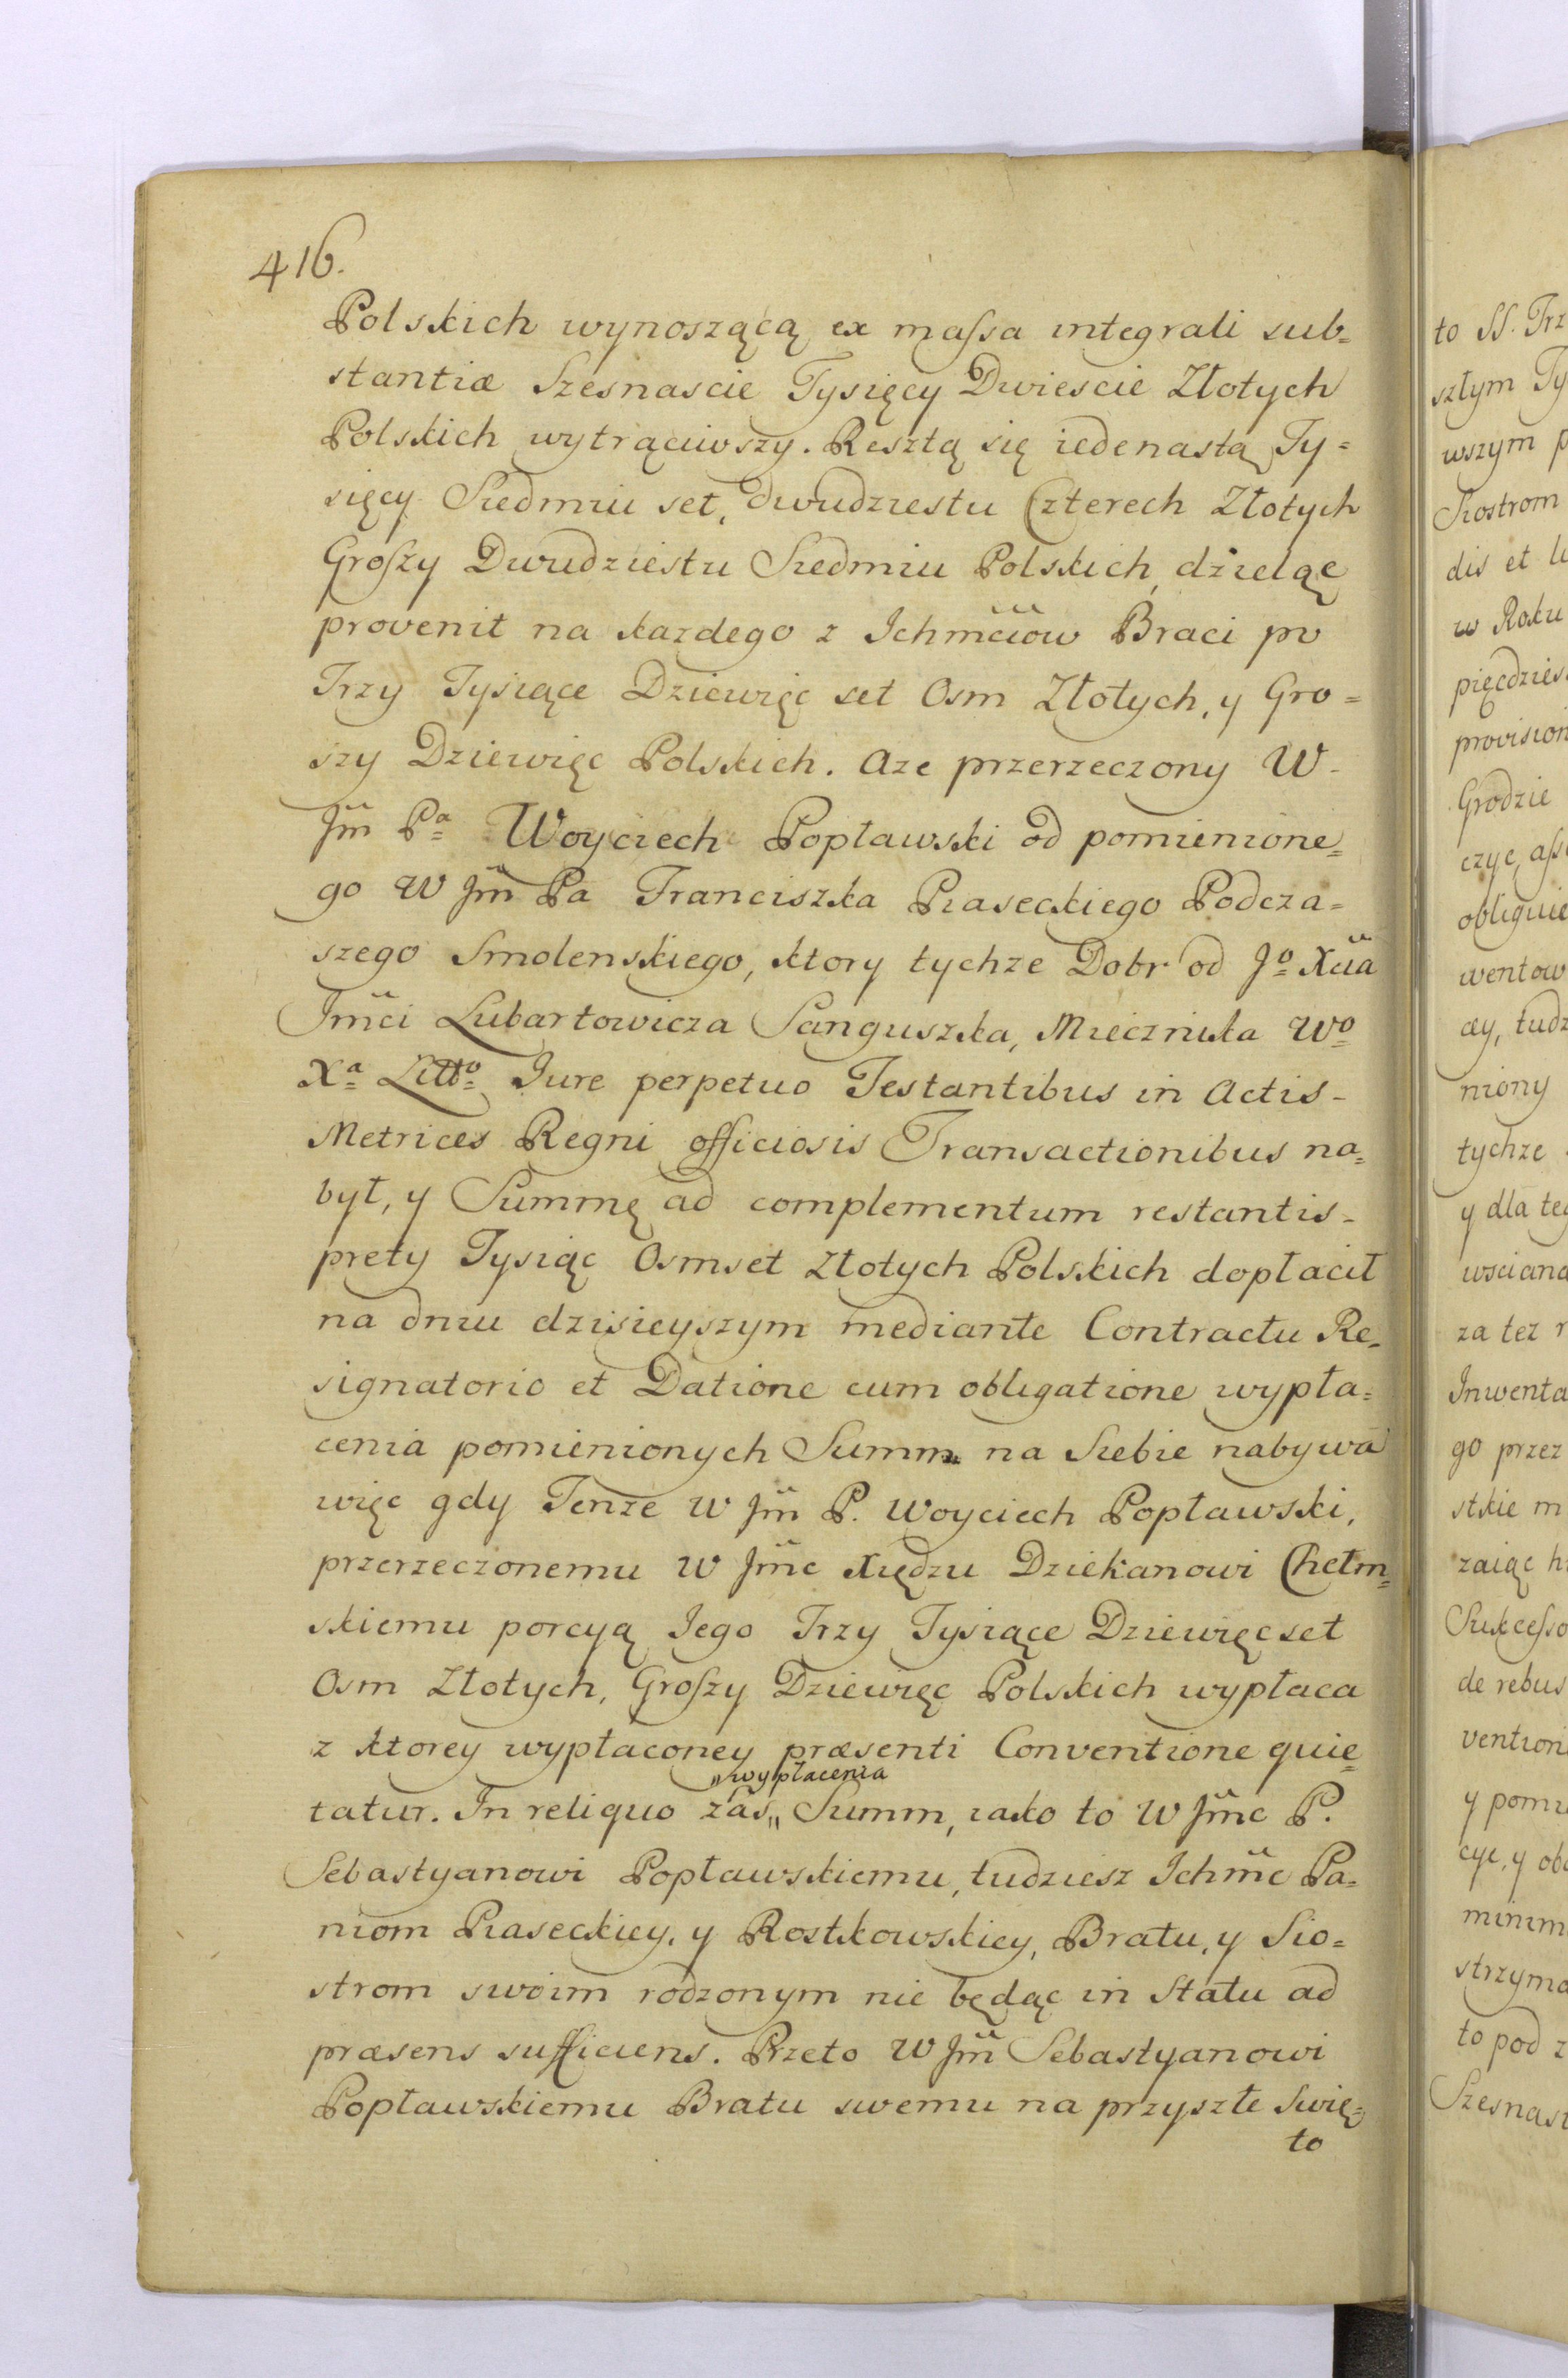 416.
Polskich wynoszącą ex massa integrali sub=
stantiæ Szesnascie Tysięcy Dwiescie Złotych
Polskich wytrąciwszy. Resztą się iedenastą Ty=
sięcy Siedmiu set, dwudziestu Czterech Złotych
Groszy Dwudziestu Siedmiu Polskich, dzieląc
provenit na kazdego z Ichmciow Braci po
Trzy Tysiące Dziewięc set Osm Złotych, y Gro=
szy Dziewięc Polskich. Aze przerzeczony W.
Jm Pa Woyciech Popławski od pomienione=
go W Jm Pa Franciszka Piaseckiego Podcza=
szego Smolenskiego, ktory tychze Dobr od Jo Xcia
Jmci Lubartowicza Sanguszka, Miecznika Wo
Xa Litto Jure perpetuo Testantibus in Actis-
Metrices Regni officiosis Transactionibus na=
był, y Summę ad complementum restantis-
prety Tysiąc Osmset Złotych Polskich dopłacił
na dniu dzisieyszym mediante Contractu Re=
signatorio et Datione cum obligatione wypła=
cenia pomienionych Summ na Siebie nabywa
więc gdy Tenze W Jm P. Woyciech Popławski,
przerzeczonemu W Jmc Xiędzu Dziekanowi Chełm=
skiemu porcyą Jego Trzy Tysiące Dziewięcset
Osm Złotych, Groszy Dziewięc Polskich wypłaca
z ktorey wypłaconey præsenti Conventione quie=
„wypłacenia
tatur. In reliquo zas„ Summ, iako to W Jmc P.
Sebastyanowi Popławskiemu, tudziesz Ichmc Pa=
niom Piaseckiey, y Rostkowskiey, Bratu, y Sio=
strom swoim rodzonym nie będąc in Statu ad
præsens sufficiens. Przeto W Jm Sebastyanowi
Popławskiemu Bratu swemu na przyszłe Swię=
to
to SS. Trz
szłym Ty
wszym p
Siostrom
dis et li
w Roku
pięcdzies
provision
Grodzie
czyc, ass
obliguie
wentow
ey, tudz
niony
tychze
y dla teg
wsciana
za tez r
Inwenta
go przez
stkie m
zaiąc h
Sukcesso
de rebus
ventioni
y pomi
cyc, y ob
minim
strzyma
to pod z
Szesnast